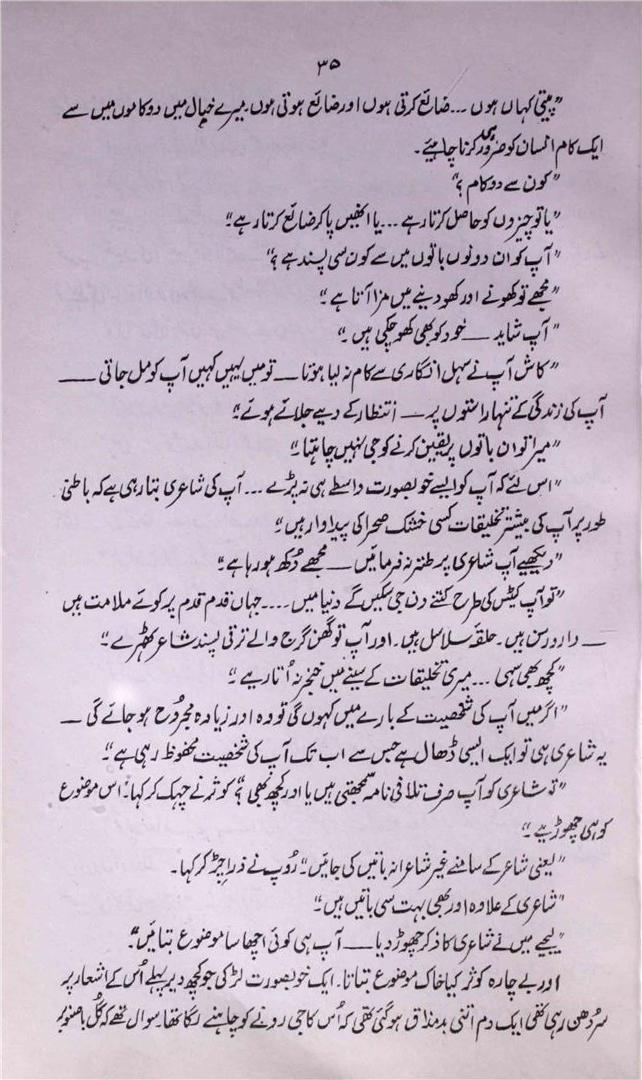 ۳۵
”پیتی کہاں ہوں ... ضائع کرتی ہوں اور ضائع ہوتی ہوں، میرے خیال میں دو کاموں میں سے
ایک کام انسان کو ضرور کرنا چاہئیے۔
”کون سے دو کام ؟“
”یا تو چیزوں کو حاصل کرتا رہے ... یا انھیں پا کر ضائع کرتا رہے“
”آپ کو ان دونوں باتوں میں سے کون سی پسند ہے ؟“
”مجھے تو کھونے اور کھو دینے میں مزا آتا ہے“
”آپ شاید — خود کو بھی کھو چکی ہیں“
”کاش آپ نے سہل انگاری سے کام نہ لیا ہوتا — تو میں یہیں کہیں آپ کو مل جاتی —
آپ کی زندگی کے تنہا راستوں پر — انتظار کے دیے جلائے ہوئے“
”میرا تو ان باتوں پر یقین کرنے کو جی نہیں چاہتا“
”اس لئے کہ آپ کو ایسے خوبصورت واسطے ہی نہ پڑے ... آپ کی شاعری بتا رہی ہے کہ باطنی
طور پر آپ کی بیشتر تخلیقات کسی خشک صحرا کی پیداوار ہیں“
”دیکھیے آپ شاعری پر طنز نہ فرمائیں — مجھے دُکھ ہو رہا ہے“
”تو آپ کیٹس کی طرح کتنے دن جی سکیں گے دنیا میں .... جہاں قدم قدم پر کوئے ملامت ہیں
— دار و رسن ہیں۔ حلقۂ سلاسل ہیں۔ اور آپ تو گھن گرج والے ترقی پسند شاعر ٹھہرے“
”کچھ بھی سہی ... میری تخلیقات کے سینے میں خنجر نہ اُتاریے“
”اگر میں آپ کی شخصیت کے بارے میں کہوں گی تو وہ اور زیادہ مجروح ہو جائے گی —
یہ شاعری ہی تو ایک ایسی ڈھال ہے جس سے اب تک آپ کی شخصیت محفوظ رہی ہے“
”تو شاعری کو آپ صرف تلافی نامہ سمجھتی ہیں یا اور کچھ بھی ؟“ کوثر نے چہک کر کہا۔ اس موضوع
کو ہی چھوڑیے“
”یعنی شاعر کے سامنے غیر شاعرانہ باتیں کی جائیں“ رُوپ نے ذرا چڑ کر کہا۔
”شاعری کے علاوہ اور بھی بہت سی باتیں ہیں“
”لیجے میں نے شاعری کا ذکر چھوڑ دیا — آپ ہی کوئی اچھا سا موضوع بتائیں“
اور بے چارہ کوثر کیا خاک موضوع بتاتا۔ ایک خوبصورت لڑکی جو کچھ دیر پہلے اُس کے اشعار پر
سر دُھن رہی تھی ایک دم اتنی بدمذاق ہو گئی تھی کہ اُس کا جی رونے کو چاہنے لگا تھا۔ سوال تھے کہ گُل با صنوبر